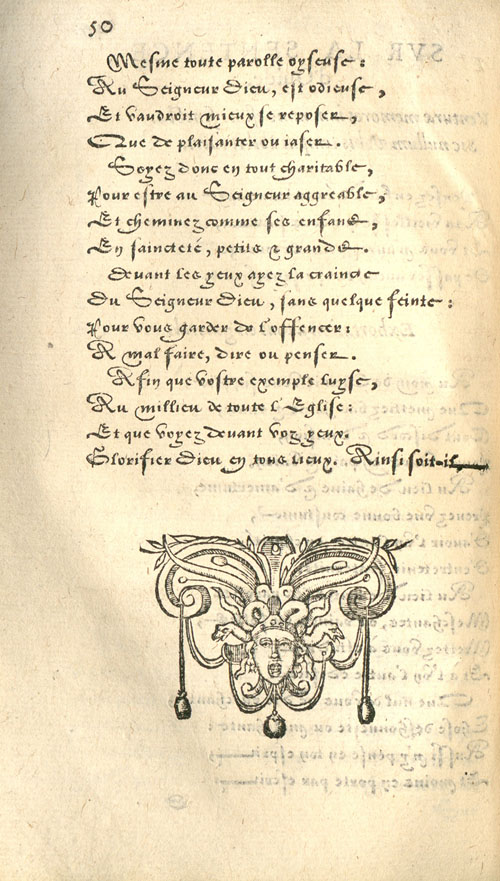 50
Mesme toute parolle oyseuse:
Au Seigneur Dieu, est odieuse,
Et vaudroit mieux se reposer,
Que de plaisanter ou iaser.
Soyez donc en tout charitable,
Pour estre au Seigneur aggreable,
Et cheminez comme ses enfans,
En saincteté, petits & grands.
Devant les yeux ayez la craincte
Du Seigneur Dieu, sans quelque feinte:
Pour vous garder de l'offencer:
A mal faire, dire ou penser.
Afin que vostre exemple luyse,
Au millieu de toute l'Eglise:
Et que voyez devant voz yeux.
Glorifier Dieu en tous lieux. Ainsi soit-il